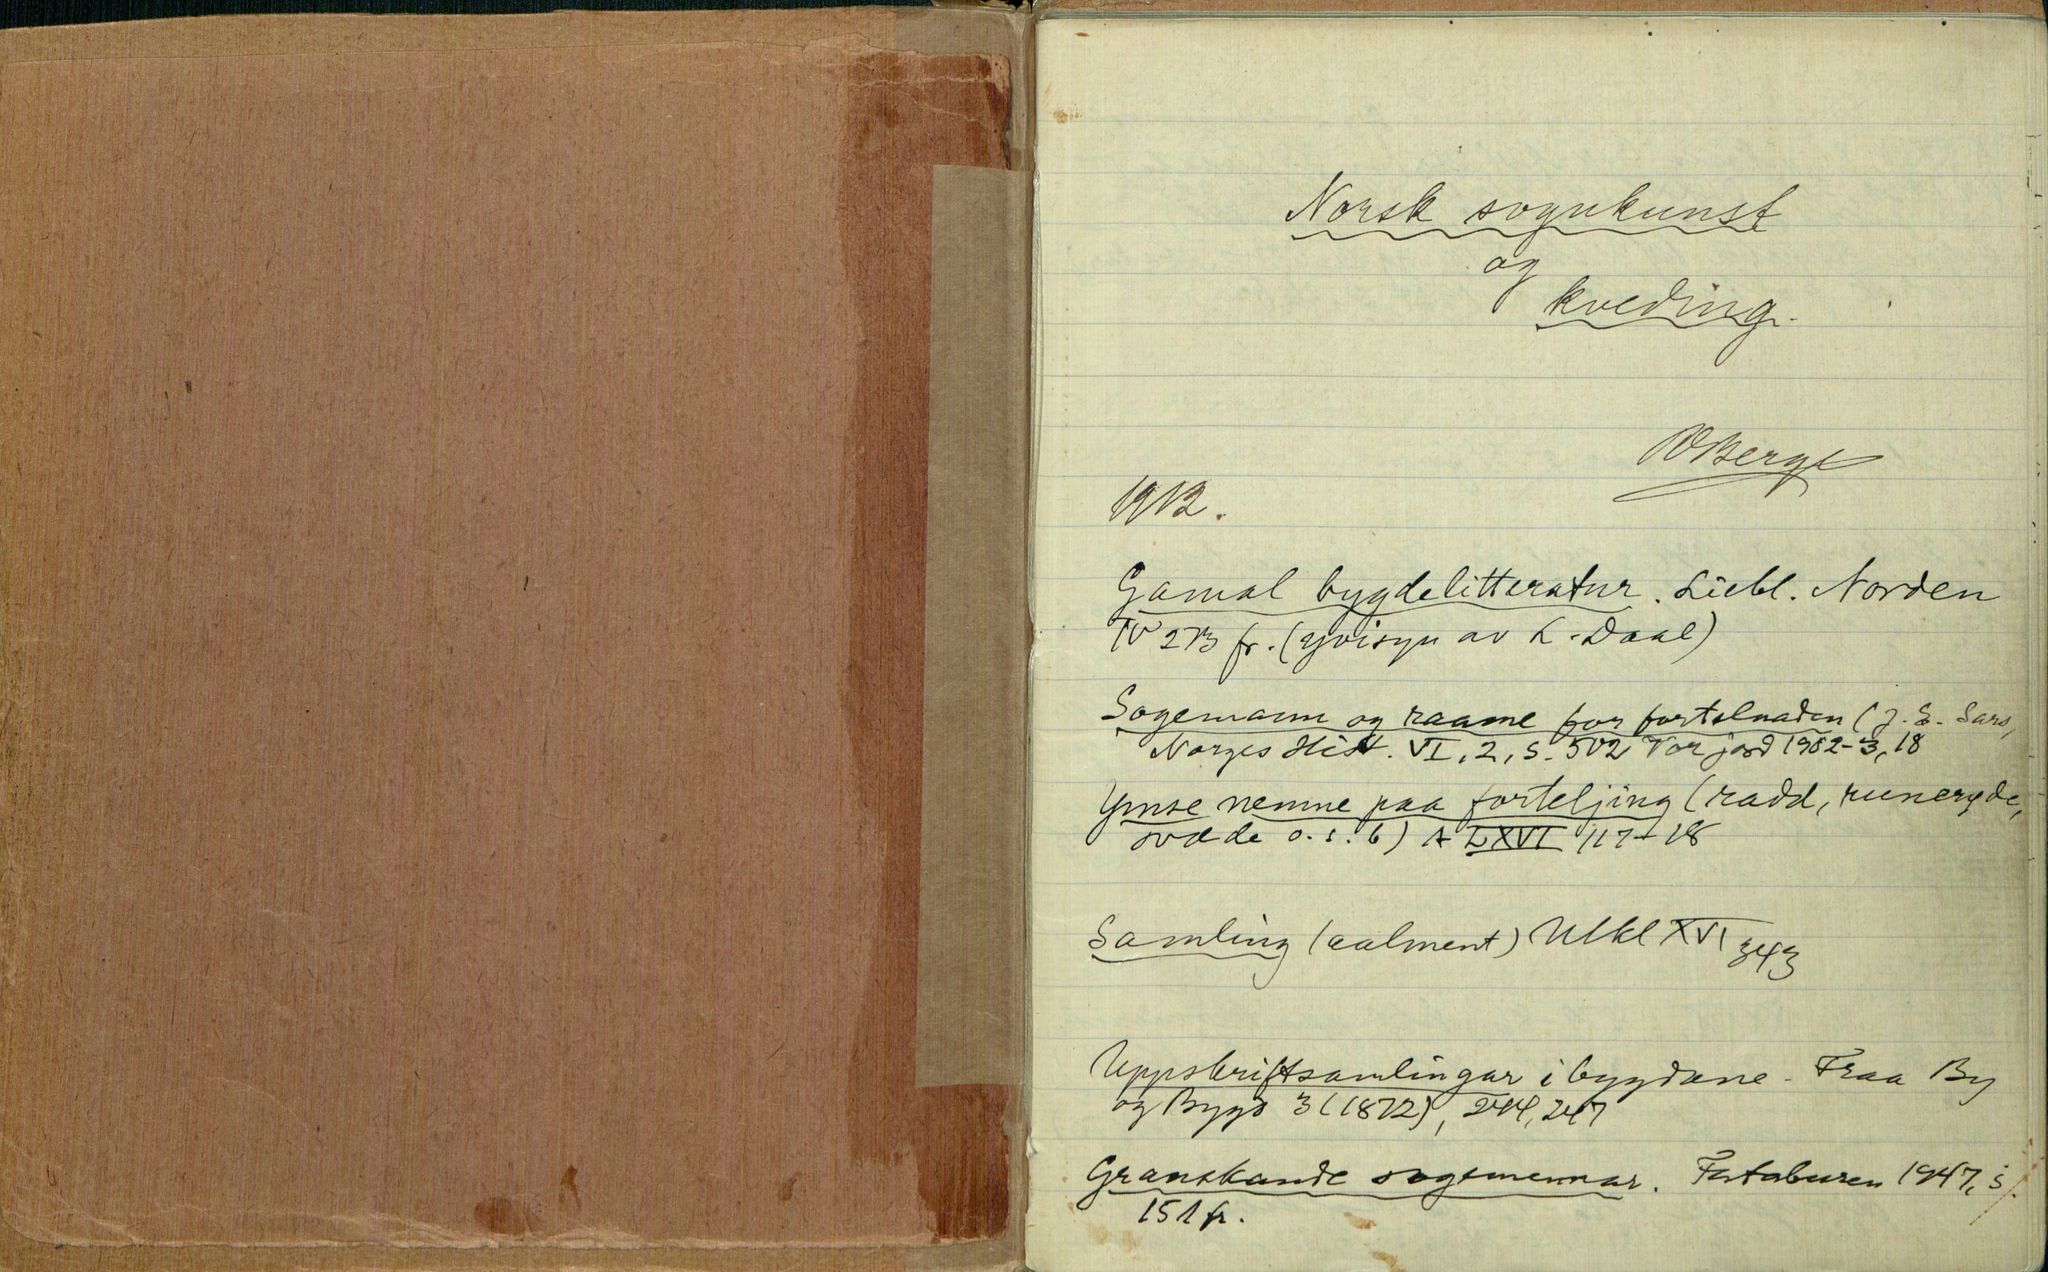 Norsk sogukunst
og
kveding.
RBerge
1912.
Gamal bygdelitteratur. Siebl. Norden
IV 273 fr. (yvisyn av L. Daae)
Sogemann og raame for fortelnaden (J. E. Sars,
Norges Hist. VI, 2, s. 502 Vor jord 1902-3, 18
Ymse nemne paa forteljing (radd, runerøde,
svæde o.s.b) A LXVI 117-18
Samling (aalment) Utkl XVI 343
Uppskriftsamlingar i bygdane. Fraa By
og Bygd 3 (1872), 244, 247
Granskande sogemennar. Fataburen 1947, s.
151 fr.